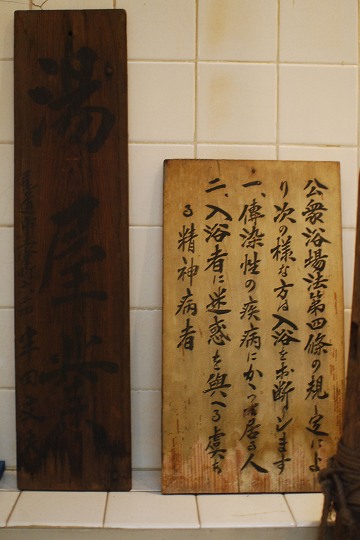 公衆浴場法第四條の規定によ
り次の様な方は入浴をお断りします
一、傳染性の疾病にかゝつて居る人
二、入浴者に迷惑を與へる虞ある
精神病者
湯屋業
尾道市